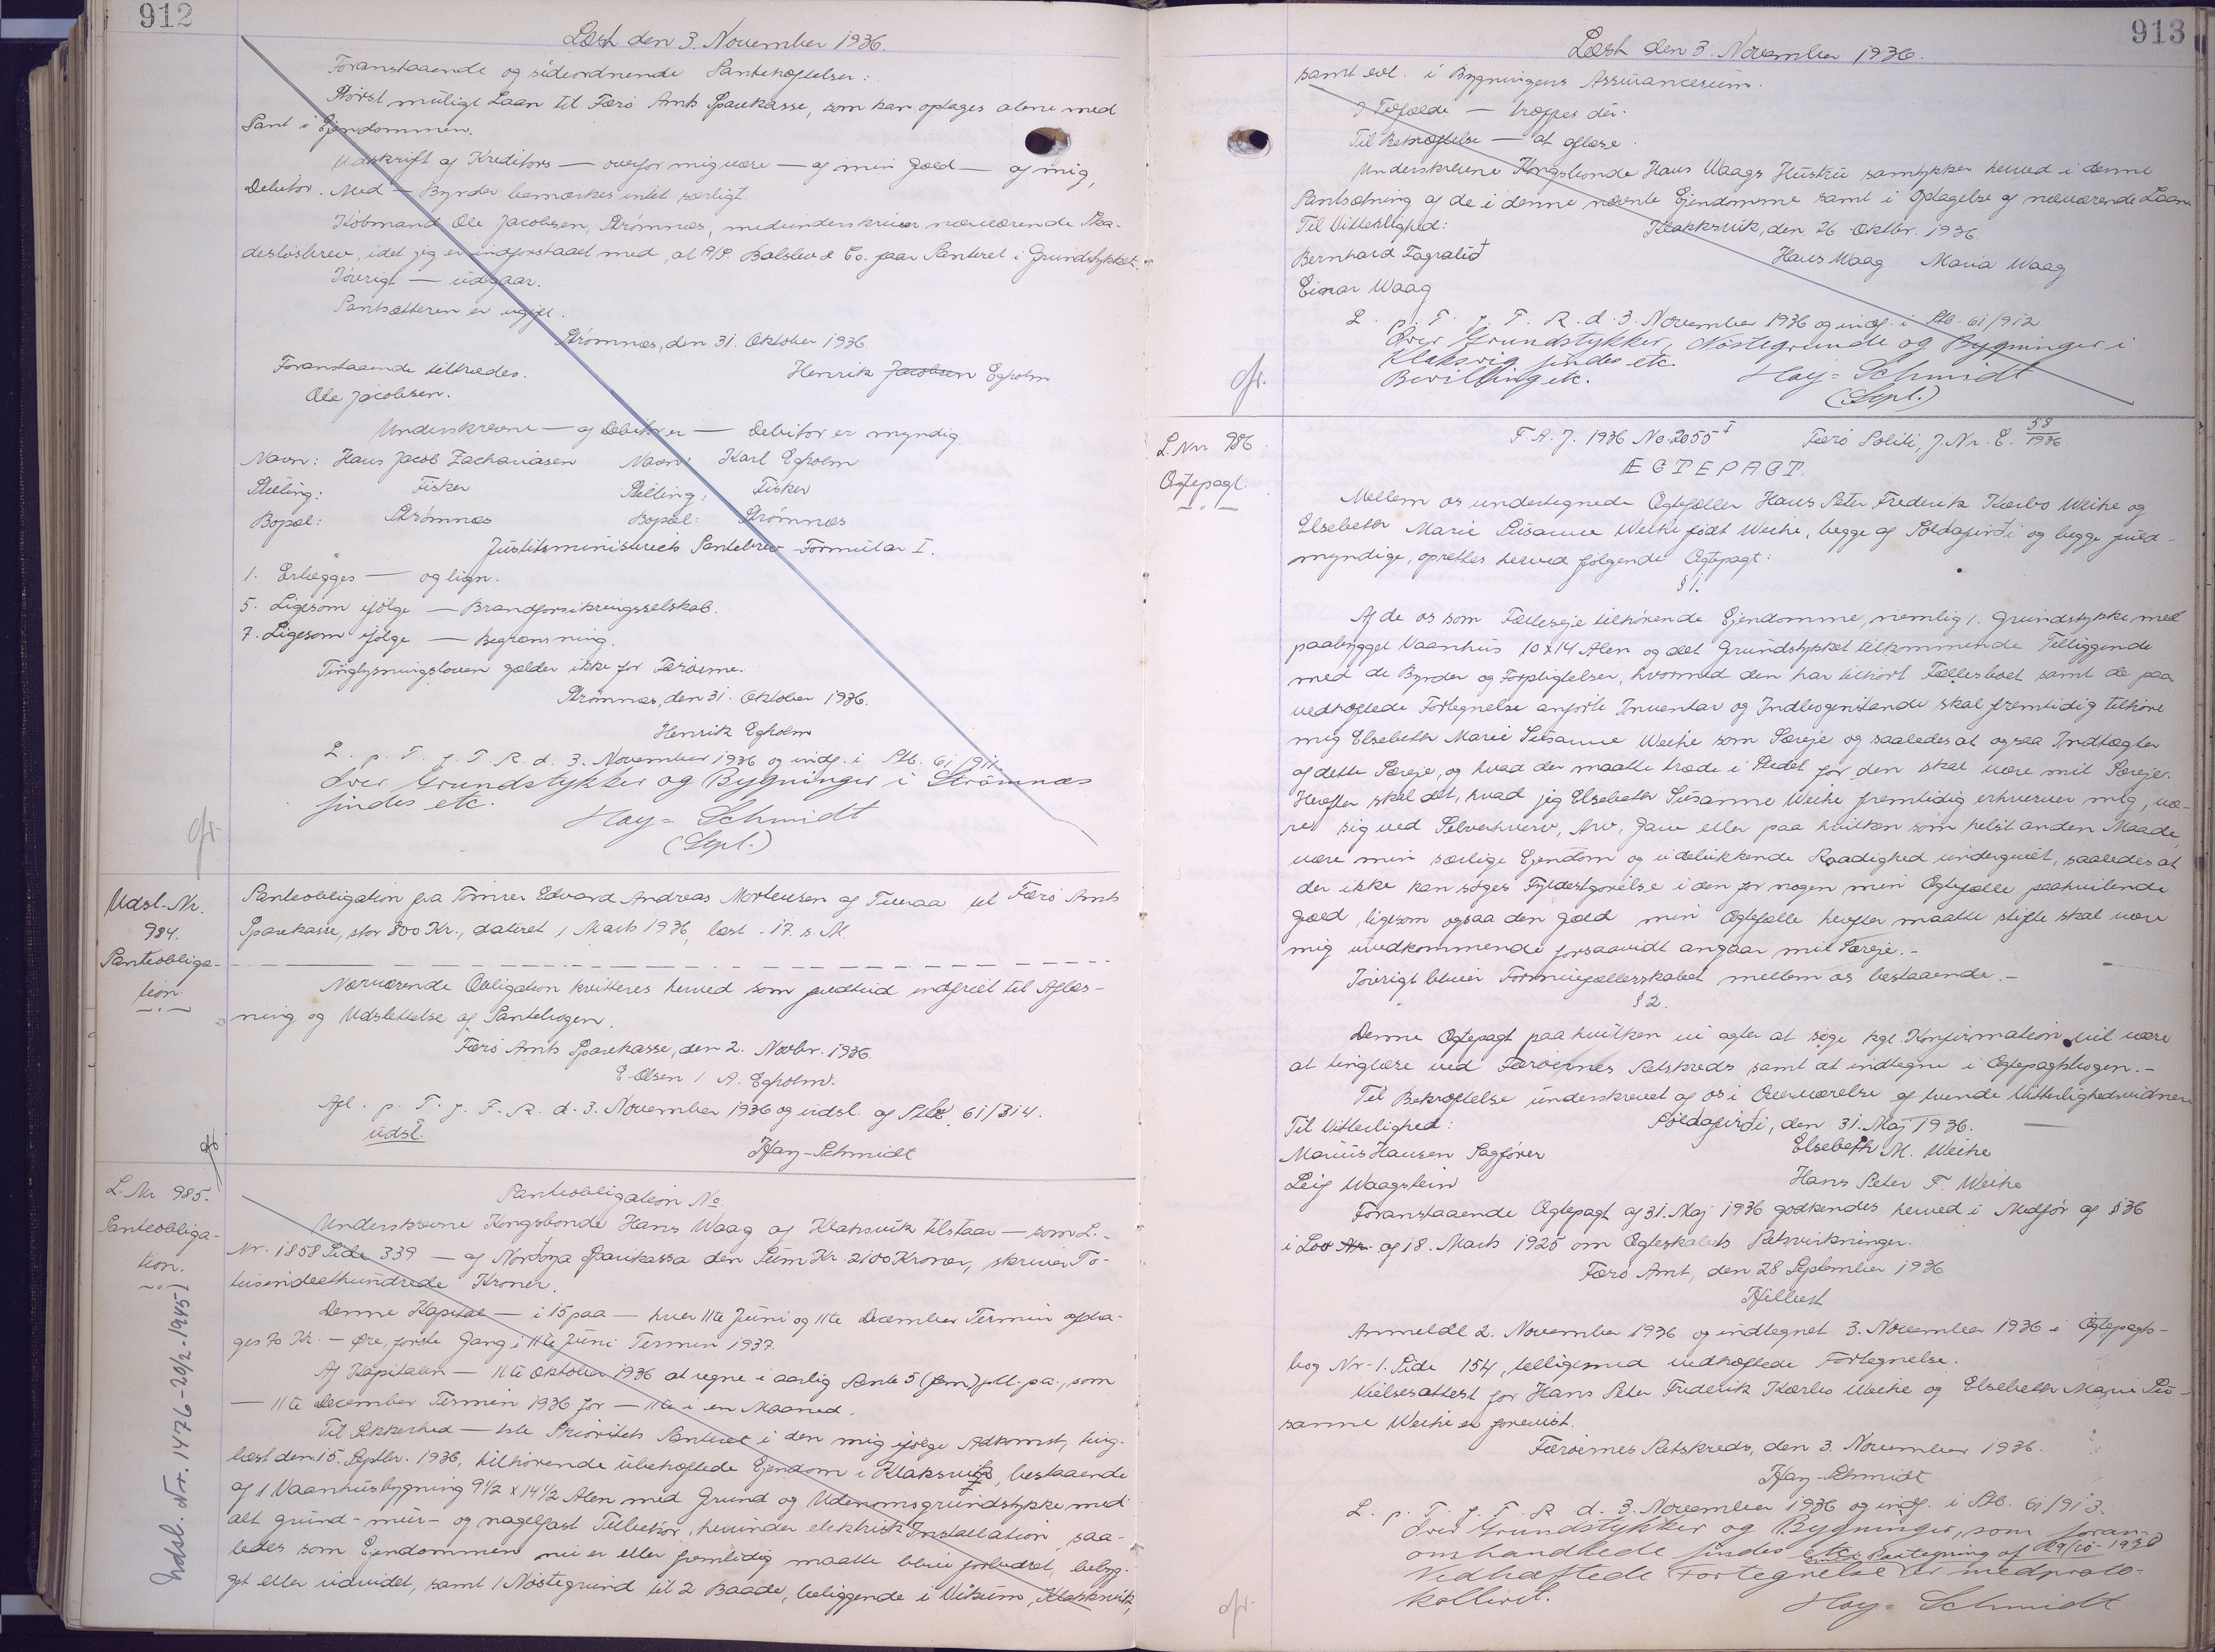 912
Læst den 3. November 1936.
Foranstaaende og sideordnende Pantehæftelser:
Størst muligt Laan til Færø Amts Sparekasse, som kan optages alene med
Pant i Ejendommen.
Udskrift af Kreditors — overfor mig være — af min Gæld — af mig,
Debitor. Med — Byrder bemærkes intet særligt.
Købmand Ole Jacobsen, Strømnæs, medunderskriver nærværende Ska-
desløsbrev, idet jeg er indforstaaet med, at A/S. Balslev & Co. faar Panteret i Grundstykket.
Iøvrigt — udgaar.
Pantsætteren er ugift.
Strømnæs, den 31. Oktober 1936.
Foranstaaende tiltrædes. Henrik Jacobsen Egholm
Ole Jacobsen.
Underskrevne — af Debitor er — Debitor er myndig.
Navn: Hans Jacob Zachariasen Navn: Karl Egholm
Stilling: Fisker Stilling: Fisker
Bopæl: Strømnæs Bopæl: Strømnæs
Justitsministeriets Pantebrev-Formular I.
1. Erlægges — og lign.
5. Ligesom ifølge — Brandforsikringsselskab.
7. Ligesom ifølge — Begrænsning.
Tinglysningsloven gælder ikke for Færøerne.
Strømnæs, den 31. Oktober 1936.
Henrik Egholm
L. p. T. f. F. R. d. 3. November 1936 og indf. i Ptb. 61/911.
Over Grundstykker og Bygninger i Strømnæs
findes etc.
Hay-Schmidt
(Stpl.)
cfr.
Udsl.-Nr.
984.
Panteobliga-
tion.
Panteobligation fra Tømrer Edvard Andreas Mortensen af Tveraa til Færø Amts
Sparekasse, stor 800 Kr., dateret 1 Marts 1936, læst 17. s. M.
Nærværende Obligation kvitteres herved som fuldtud indfriet til Aflæs-
ning og Udslettelse af Pantebogen.
Færø Amts Sparekasse, den 2. Novbr. 1936.
E. Olsen / A. Egholm.
Afl. p. T. f. F. R. d. 3. November 1936 og udsl. af Ptb. 61/314.
udsl.
Hay-Schmidt
L. Nr. 985.
Panteobliga-
tion.
Udsl. Nr. 1476-20/2-1945
Panteobligation No
Underskrevne Kongsbonde Hans Waag af Klaksvik tilstaar — som L.-
Nr. 1858 Side 339 — af Nordoya Sparikassa den Sum Kr 2100 Kroner, skriver To-
tusindeethundrede Kroner.
Denne Kapital — i 15 paa — hver 11te Juni og 11te December Termin afdra-
ges 70 Kr. — Øre, første Gang i 11te Juni Termin 1937.
Af Kapitalen — 11te Oktober 1936 at regne i aarlig Rente 5 (fem) pCt. p.a., som
— 11te December Termin 1936 for — 11te i en Maaned.
Til Sikkerhed — 1ste Prioritets Panteret i den mig ifølge Adkomst, ting-
læst den 15. Septbr. 1936, tilhørende ubehæftede Ejendom i Klaksvik, bestaaende
af 1 Vaanhusbygning 9½ x 14½ Alen med Grund og Udenomsgrundstykke, med
alt grund- mur- og nagelfast Tilbehør, herunder elektrisk Installation, saa-
ledes som Ejendommen nu er eller fremtidig maatte blive forbedret, bebyg-
get eller udvidet, samt 1 Nøstegrund til 2 Baade, beliggende i Vikum, Klaksvik,
913
Læst den 3. November 1936.
samt evt. i Bygningens Assurancesum.
I Tilfælde — træffes dér.
Til Bekræftelse — at aflæse.
Underskrevne Kongsbonde Hans Waags Hustru samtykker herved i denne
Pantsætning af de i denne nævnte Ejendomme samt i Optagelse af nærværende Laan.
Til Vitterlighed: Klakksvik, den 26 Oktbr. 1936.
Bernhard Fagralid Hans Waag Maria Waag
Einar Waag
L. p. T. f. F. R. d. 3. November 1936 og indf. i Ptb. 61/912
Over Grundstykker, Nøstegrunde og Bygninger i
Klaksvig findes etc.
Bevilling etc. Hay-Schmidt
(Stpl.)
cfr.
L. Nr. 986.
Ægtepagt.
F. A. J. 1936 No. 2055 I Færø Politi, J. Nr. E. 58/1936
ÆGTEPAGT.
Mellem os undertegnede Ægtefæller Hans Peter Frederik Kærbo Weihe og
Elsebeth Marie Susanne Weihe født Weihe, begge af Søldafirdi og begge fuld-
myndige, oprettes herved følgende Ægtepagt:
§ 1.
Af de os som Fælleseje tilhørende Ejendomme, nemlig 1. Grundstykke med
paabygget Vaanhus 10x14 Alen og det Grundstykket tilkommende Tilliggende
med de Byrder og Forpligtelser, hvormed den har tilhørt Fællesboet samt de paa
vedhæftede Fortegnelse anførte Inventar og Indbogenstande skal fremtidig tilhøre
mig Elsebeth Marie Susanne Weihe som Særeje og saaledes at ogsaa Indtægter
af dette Særeje, og hvad der maatte træde i Stedet for den skal være mit Særeje.
Herefter skal det, hvad jeg Elsebeth Susanne Weihe fremtidig erhverver mig, væ-
re sig ved Selverhverv, Arv, Gave eller paa hvilken som helst anden Maade,
være min særlige Ejendom og udelukkende Raadighed undergivet, saaledes at
der ikke kan søges Fyldestgørelse i den for nogen min Ægtefælle paahvilende
Gæld, ligesom ogsaa den Gæld min Ægtefælle herefter maatte stifte skal være
mig uvedkommende forsaavidt angaar mit Særeje.-
Iøvrigt bliver Formuefællesskabet mellem os bestaaende.-
§ 2.
Denne Ægtepagt paa hvilken vi agter at søge kgl. Konfirmation vil være
at tinglæse ved Færøernes Retskreds samt at indtegne i Ægtepagtsbogen.-
Til Bekræftelse underskrevet af os i Overværelse af tvende Vitterlighedsvidner.
Til Vitterlighed: Søldafirdi, den 31. Maj 1936.
Marius Hansen Sagfører Elsebeth M. Weihe
Leif Waagstein Hans Peter F. Weihe
Foranstaaende Ægtepagt af 31. Maj 1936 godkendes herved i Medfør af § 36
i Lov Nr. af 18. Marts 1925 om Ægteskabets Retsvirkninger.
Færø Amt, den 28 September 1936
Hilbert
Anmeldt 2. November 1936 og indtegnet 3. November 1936 i Ægtepagts-
bog Nr. 1. Side 154, tilligemed vedhæftede Fortegnelse.
Vielsesattest for Hans Peter Frederik Kærbo Weihe og Elsebeth Marie Su-
sanne Weihe er forevist.
Færøernes Retskreds, den 3. November 1936.
Hay-Schmidt
L. p. T. f. F. R. d. 3. November 1936 og indf. i Ptb. 61/913.
Over Grundstykker og Bygninger, som foran-
omhandlede findes etc. Paategning af 29/10-1936
Vedhæftede Fortegnelse er medproto-
kolleret. Hay-Schmidt
cfr.